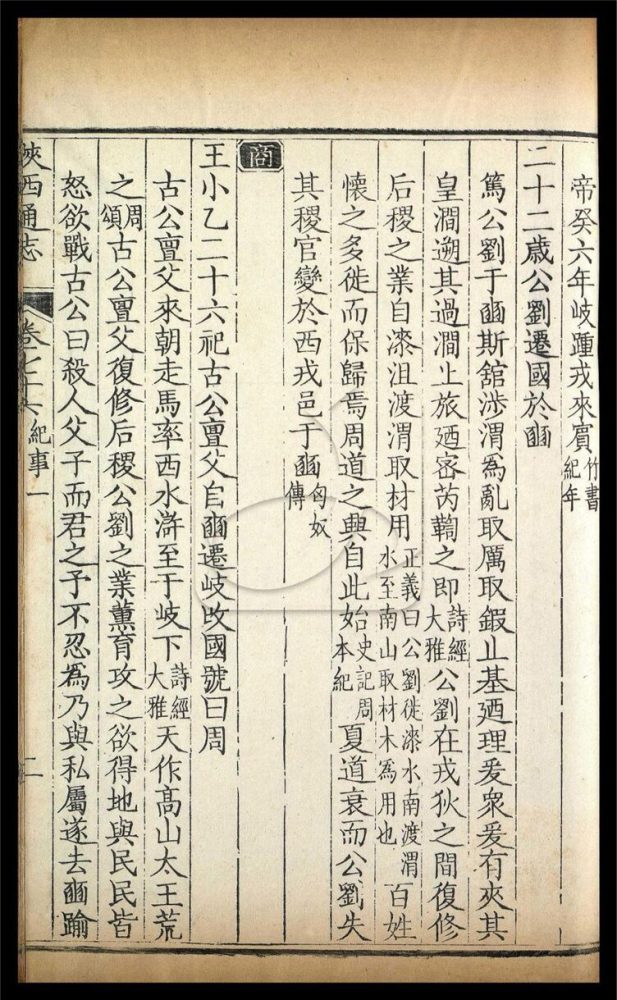 帝癸六年岐踵戎來賓竹書紀年
二十二歲公劉遷國於豳
篤公劉于豳斯舘涉渭爲亂取厲取鍜止基廼理爰衆爰有夾其
皇澗遡其過澗止旅廼密芮鞫之即詩經大雅公劉在戎狄之間復修
后稷之業自漆沮渡渭取材用正義曰公劉徙漆水南渡渭水至南山取材木爲用也百姓
懷之多徙而保歸焉周道之興自此始史記周本紀夏道衰而公劉失
其稷官變於西戎邑于豳匈奴傳
商
王小乙二十六祀古公亶父自豳遷岐改國號曰周
古公亶父來朝走馬率西水滸至于岐下詩經大雅天作高山太王荒
之周頌古公亶父復修后稷公劉之業薰育攻之欲得地與民民皆
怒欲戰古公曰殺人父子而君之予不忍爲乃與私屬遂去豳踰
陜西通志
卷七十八
紀事一
二